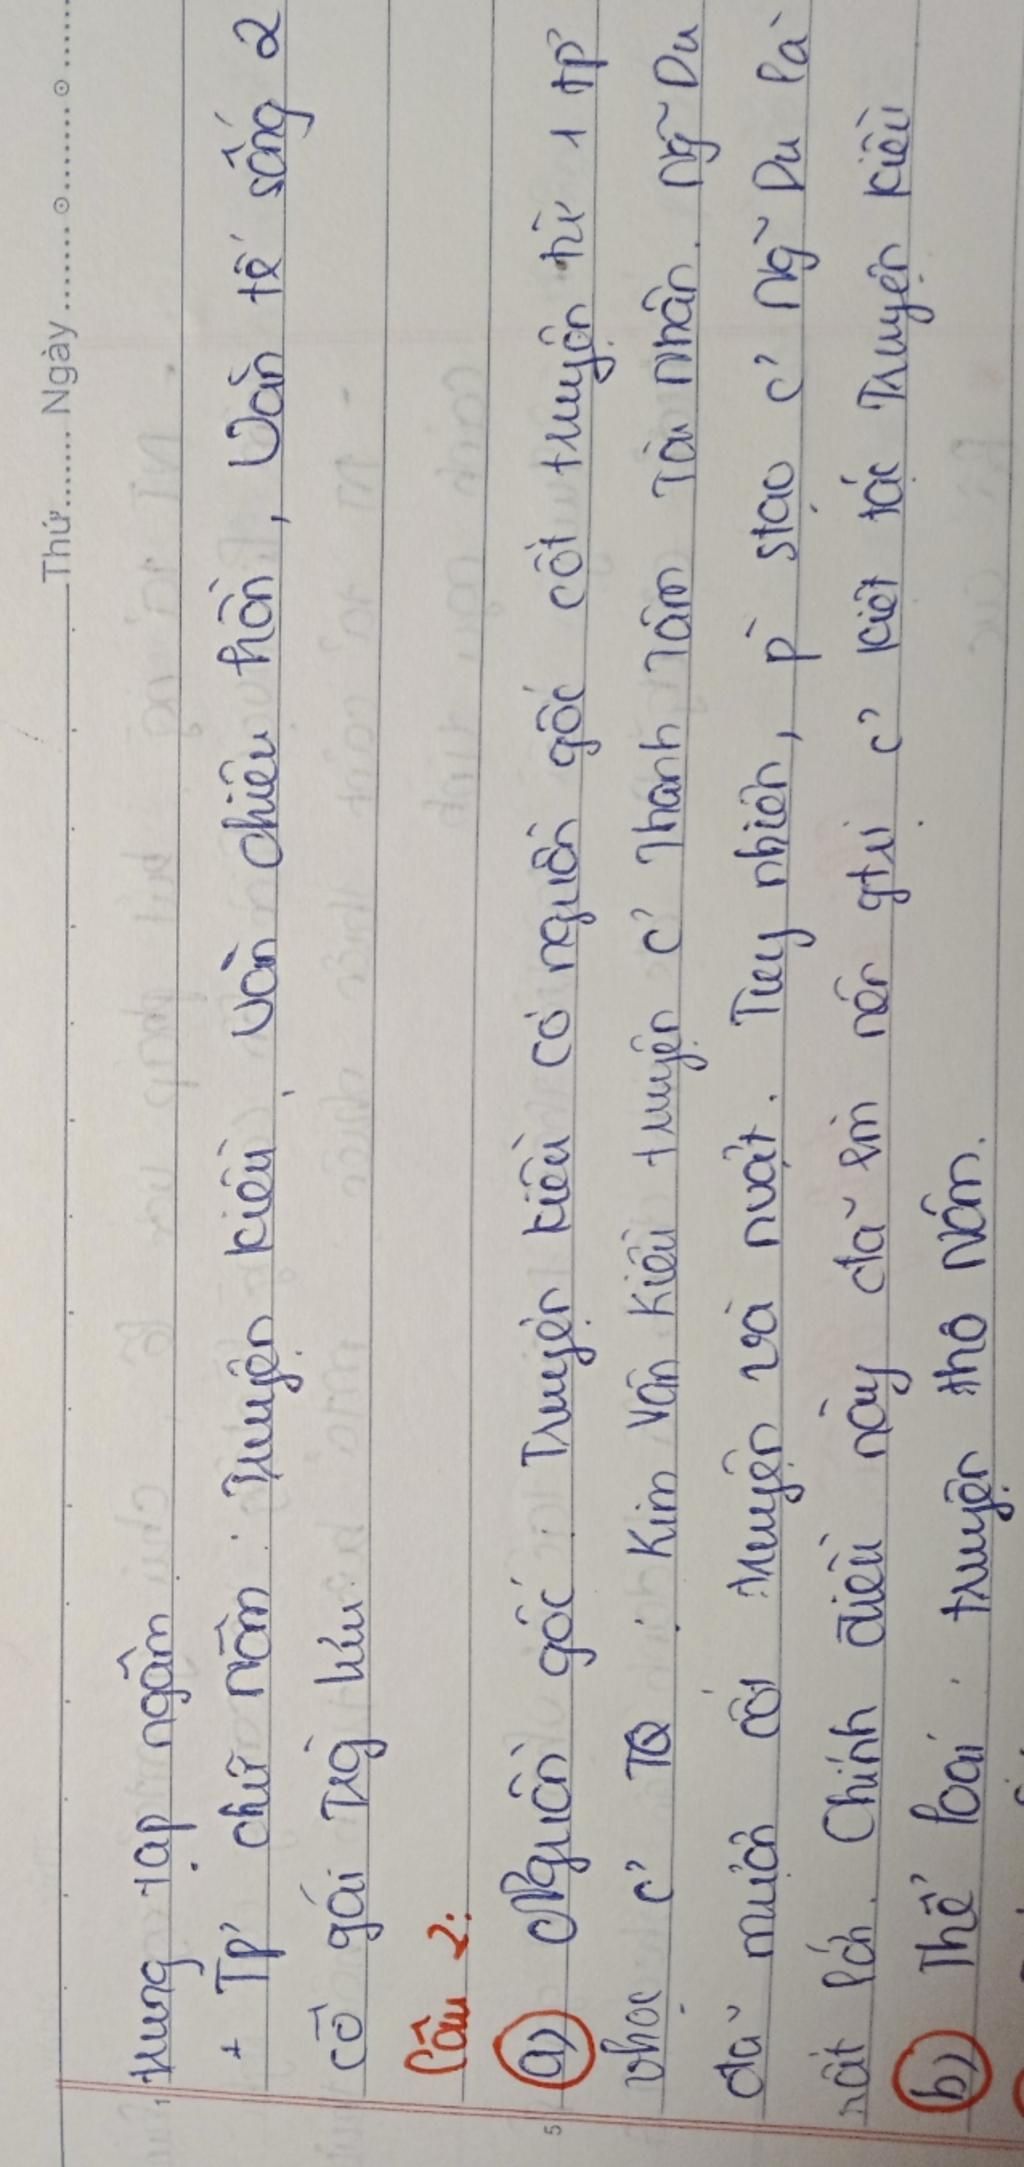 Thứ....... Ngày.......
trung tạp ngâm
+ Tp' chữ nôm : Truyện kiều, Văn chiêu hồn, Văn tế sống 2
cô gái Trg lưu
Câu 2:
a) Nguồn gốc: Truyện kiều có nguồn gốc cốt truyện từ 1 tp'
vhọc c' TQ: Kim Vân Kiều truyện c' Thanh Tâm Tài Nhân. Ng~ Du
đã mượn cốt truyện và nvật. Tuy nhiên, p` stạo c' Ng~ Du là
rất lớn. Chính điều này đã lm nên gtrị c' kiệt tác Truyện kiều
b) Thể loại: truyện thơ Nôm.
5